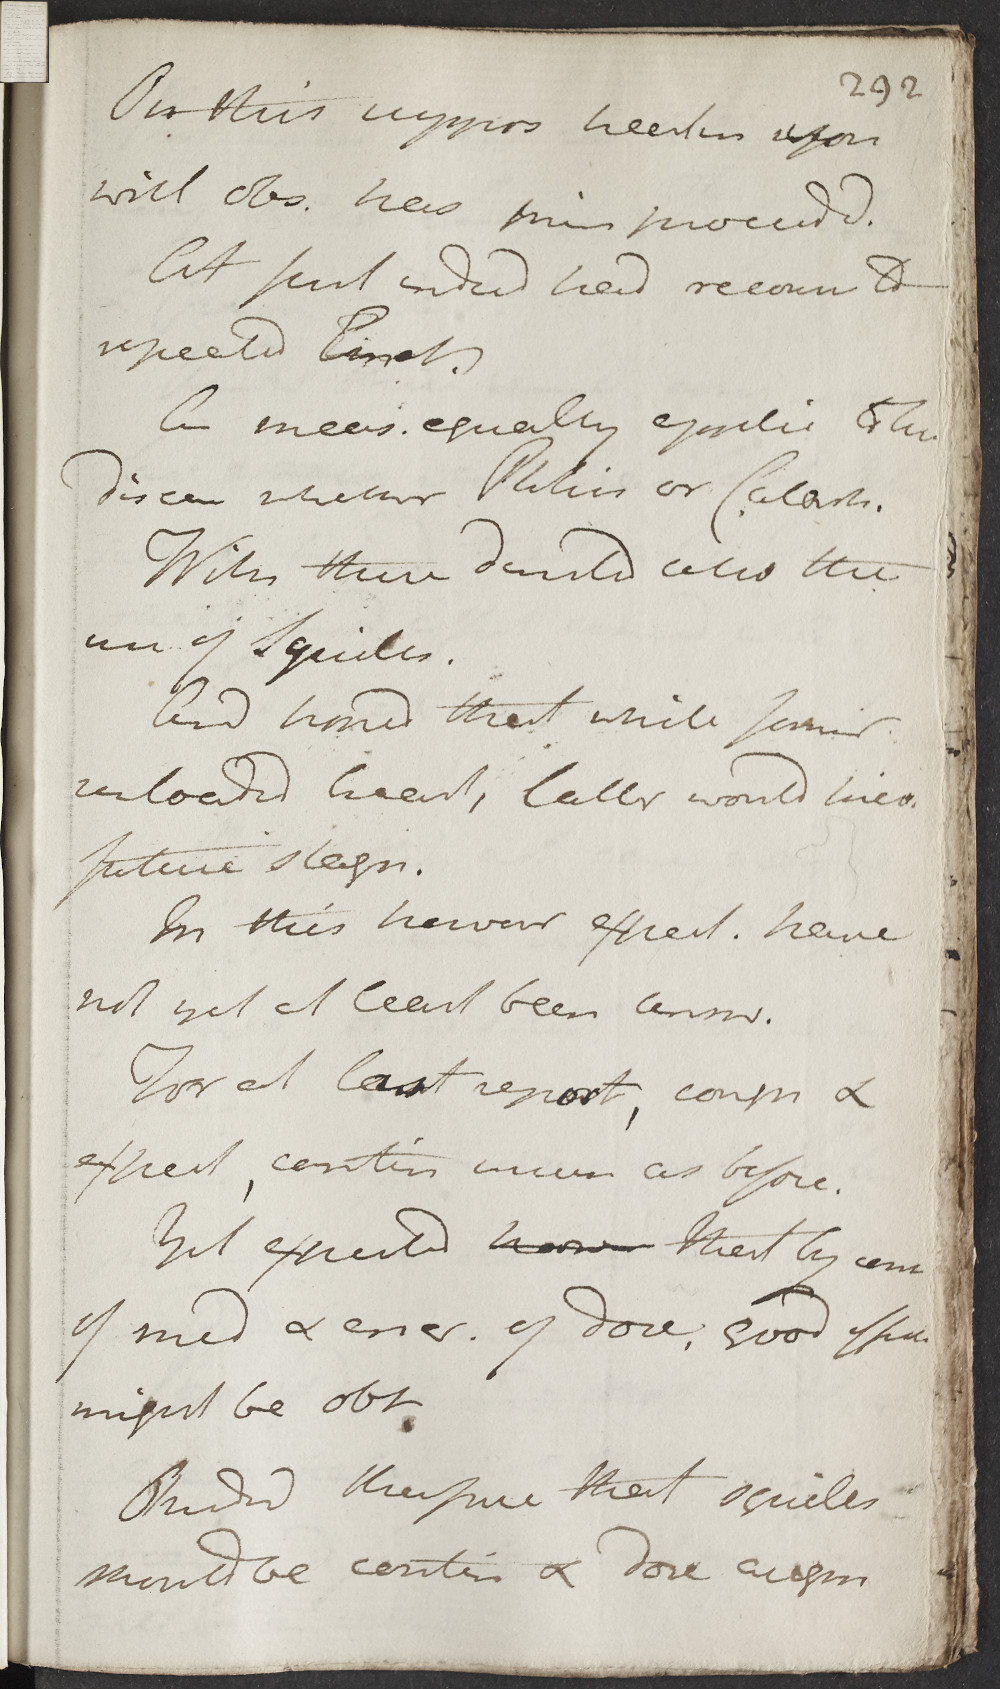 292
On this suppos has been upon
will obs. has been proceedd.
At first indeed had recourse to
repeated Emet.
A meas. equally applic to the
disease whether Phthisis or Catarrh.
With these directed also the
use of Squills.
And hoped that while former
unloaded breast, latter would
future stagn.
In this however expect. have
not yet at least been answ.
For at last report, cough &
expect, contin as before.
Yet expected that by
of med & encr. of dose, good effects
might be obt
Directed therefore that squills
should be contin & dose augm